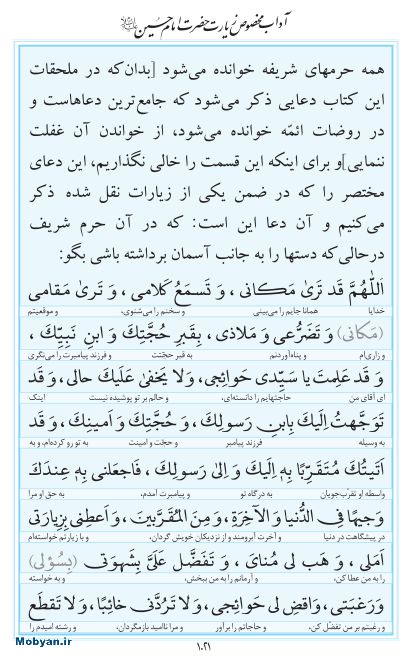 آداب مخصوص زیارت حضرت امام حسین علیه‌السلام
همه حرمهای شریفه خوانده می‌شود [بدان‌که در ملحقات
این کتاب دعایی ذکر می‌شود که جامع‌ترین دعاهاست و
در روضات ائمّه خوانده می‌شود، از خواندن آن غفلت
ننمایی] و برای اینکه این قسمت را خالی نگذاریم، این دعای
مختصر را که در ضمن یکی از زیارات نقل شده ذکر
می‌کنیم و آن دعا این است: که در آن حرم شریف
درحالی‌که دستها را به جانب آسمان برداشته باشی بگو:
اَللّٰهُمَّ قَد تَرىٰ مَكانى ، وَ تَسمَعُ كَلامى ، وَ تَرىٰ مَقامى
خدایا همانا جایم را می‌بینی و سخنم را می‌شنوی، و موقعیتم
(مَكانى) وَ تَضَرُّعى وَ مَلاذى ، بِقَبرِ حُجَّتِكَ وَ ابنِ نَبِيِّكَ ،
و زاری‌ام و پناه‌آوردنم به قبر حجّتت و فرزند پیامبرت را می‌نگری
وَ قَد عَلِمتَ يا سَيِّدى حَوائِجى ، وَلا يَخفىٰ عَلَيكَ حالى ، وَ قَد
ای آقای من حاجتهایم را دانسته‌ای، و حالم بر تو پوشیده نیست اینک
تَوَجَّهتُ اِلَيكَ بِابنِ رَسولِكَ ، وَ حُجَّتِكَ وَ اَمينِكَ ، وَ قَد
به وسیله فرزند پیامبر و حجّت و امینت به تو رو کرده‌ام، و به
اَتَيتُكَ مُتَقَرِّبًا بِهِ اِلَيكَ وَ اِلىٰ رَسولِكَ ، فَاجعَلنى بِهِ عِندَكَ
واسطه او تقرّب‌جویان به درگاه تو و پیامبرت آمدم، به حق او مرا
وَجيهًا فِى الدُّنيا وَ الآخِرَةِ ، وَ مِنَ المُقَرَّبينَ ، وَ اَعطِنى بِزِيارَتى
در پیشگاهت در دنیا و آخرت آبرومند و از نزدیکان خویش گردان، و با زیارتم خواسته‌ام
اَمَلى ، وَ هَب لى مُناىَ ، وَ تَفَضَّل عَلَىَّ بِشَهوَتى (بِسُؤلى)
را به من عطا کن، و آرمانم را به من ببخش، و به خواسته
وَ رَغبَتى ، وَاقضِ لى حَوائِجى ، وَلا تَرُدَّنى خائِبًا ، وَلا تَقطَع
و رغبتم بر من تفضّل کن، و حاجاتم را برآور و مرا ناامید بازمگردان، و رشته امیدم را
١٠٢١
Mobyan.ir